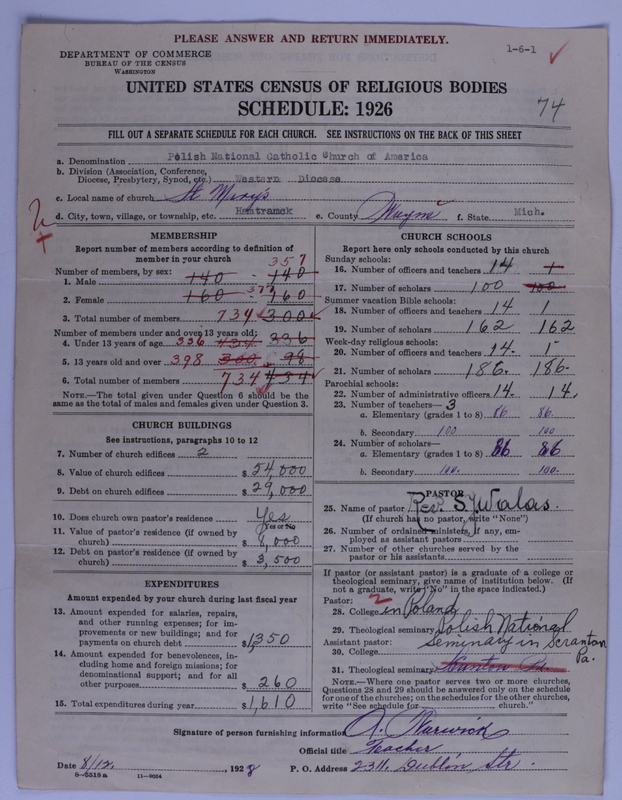 PLEASE ANSWER AND RETURN IMMEDIATELY.
DEPARTMENT OF COMMERCE
BUREAU OF THE CENSUS
WASHINGTON
1-6-1
UNITED STATES CENSUS OF RELIGIOUS BODIES
SCHEDULE: 1926
74
FILL OUT A SEPARATE SCHEDULE FOR EACH CHURCH. SEE INSTRUCTIONS ON THE BACK OF THIS SHEET
a. Denomination Polish National Catholic Church of America
b. Division (Association, Conference,
Diocese, Presbytery, Synod, etc.) Western Diocese
c. Local name of church St Mary's
d. City, town, village, or township, etc. Hamtramck e. County Wayne f. State Mich.
MEMBERSHIP
Report number of members according to definition of
member in your church
357
Number of members, by sex:
1. Male 140 - 140
2. Female 160 377 160
3. Total number of members 734 300
Number of members under and over 13 years old:
4. Under 13 years of age 336 434 336
5. 13 years old and over 398 300 98
6. Total number of members 734 434
NOTE.—The total given under Question 6 should be the
same as the total of males and females given under Question 3.
CHURCH BUILDINGS
See instructions, paragraphs 10 to 12
7. Number of church edifices 2
8. Value of church edifices $ 54,000
9. Debt on church edifices $ 29,000
10. Does church own pastor's residence Yes
Yes or No
11. Value of pastor's residence (if owned by
church) $ 8,000
12. Debt on pastor's residence (if owned by
church) $ 3,500
EXPENDITURES
Amount expended by your church during last fiscal year
13. Amount expended for salaries, repairs,
and other running expenses; for im-
provements or new buildings; and for
payments on church debt $ 1,350
14. Amount expended for benevolences, in-
cluding home and foreign missions; for
denominational support; and for all
other purposes $ 260
15. Total expenditures during year $ 1,610
CHURCH SCHOOLS
Report here only schools conducted by this church
Sunday schools:
16. Number of officers and teachers 14 1
17. Number of scholars 100 100
Summer vacation Bible schools:
18. Number of officers and teachers 14 1
19. Number of scholars 162 162
Week-day religious schools:
20. Number of officers and teachers 14. 1
21. Number of scholars 186. 186.
Parochial schools:
22. Number of administrative officers 14. 14.
23. Number of teachers— 3
a. Elementary (grades 1 to 8) 86 86.
b. Secondary 100 100
24. Number of scholars—
a. Elementary (grades 1 to 8) 86 86
b. Secondary 100. 100.
PASTOR
25. Name of pastor Rev. S. J. Walas.
(If church has no pastor, write "None")
26. Number of ordained ministers, if any, em-
ployed as assistant pastors
27. Number of other churches served by the
pastor or his assistants
If pastor (or assistant pastor) is a graduate of a college or
theological seminary, give name of institution below. (If
not a graduate, write "No" in the space indicated.)
Pastor: 2
28. College in Poland
29. Theological seminary Polish National
Assistant pastor: Seminary in Scranton
30. College Pa.
31. Theological seminary Scranton Pa
NOTE.—Where one pastor serves two or more churches,
Questions 28 and 29 should be answered only on the schedule
for one of the churches; on the schedules for the other churches,
write "See schedule for church."
Signature of person furnishing information A. Warwick
Official title Teacher
Date 8/12, 1928 P. O. Address 2311. Dublin Str.
8—5518a 11—9054